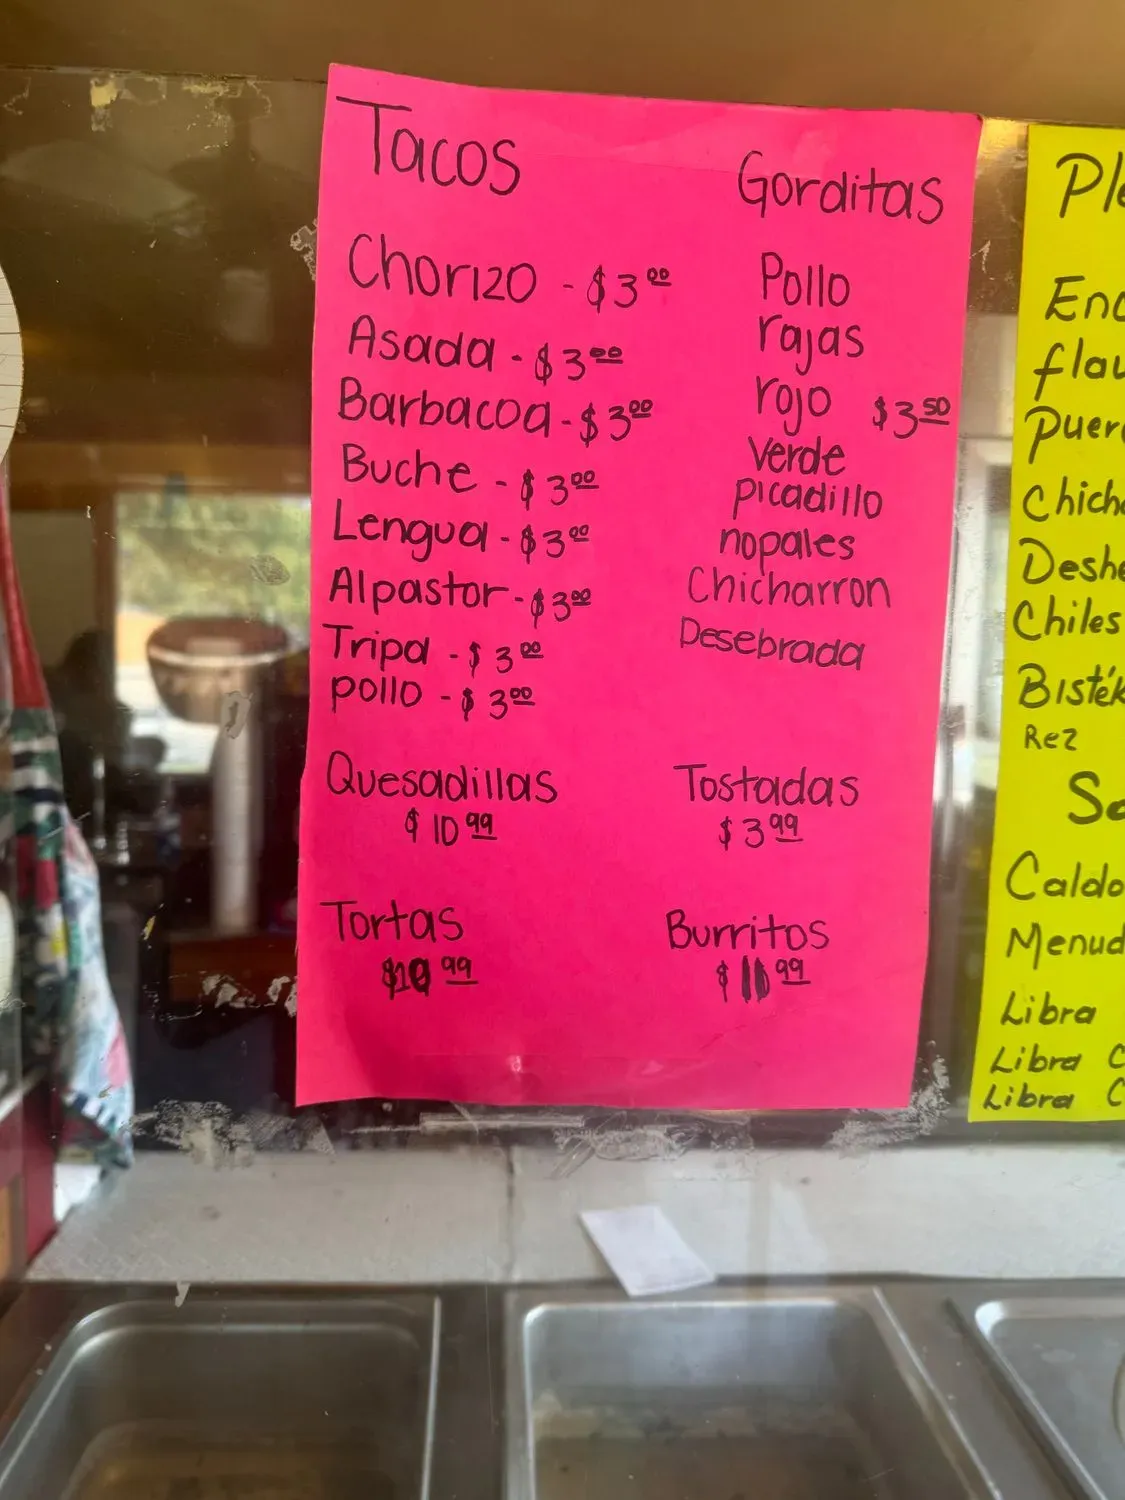 Tacos
Chorizo - $3.00
Asada - $3.00
Barbacoa - $3.00
Buche - $3.00
Lengua - $3.00
Alpastor - $3.00
Tripa - $3.00
pollo - $3.00
Gorditas
Pollo
rajas
rojo $3.50
verde
picadillo
nopales
Chicharron
Desebrada
Quesadillas
$10.99
Tostadas
$3.99
Tortas
$10.99
Burritos
$11.99
Chiles
Rez
Caldo
Libra
Libra C
Libra C